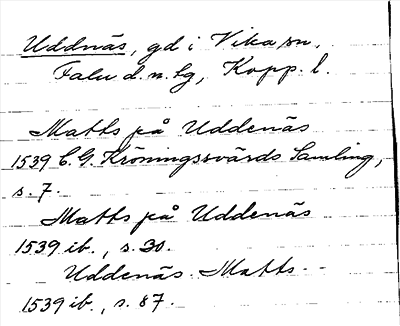 Uddnäs, gd i Vika sn,
Falu d.n. lg, Kopp. l.
Matts på Uddenäs
1539 C. G. Kröningssvärds Samling,
s. 7.
Matts på Uddenäs
1539 ib., s. 30.
Uddenäs Matts
1539 ib., s. 87.